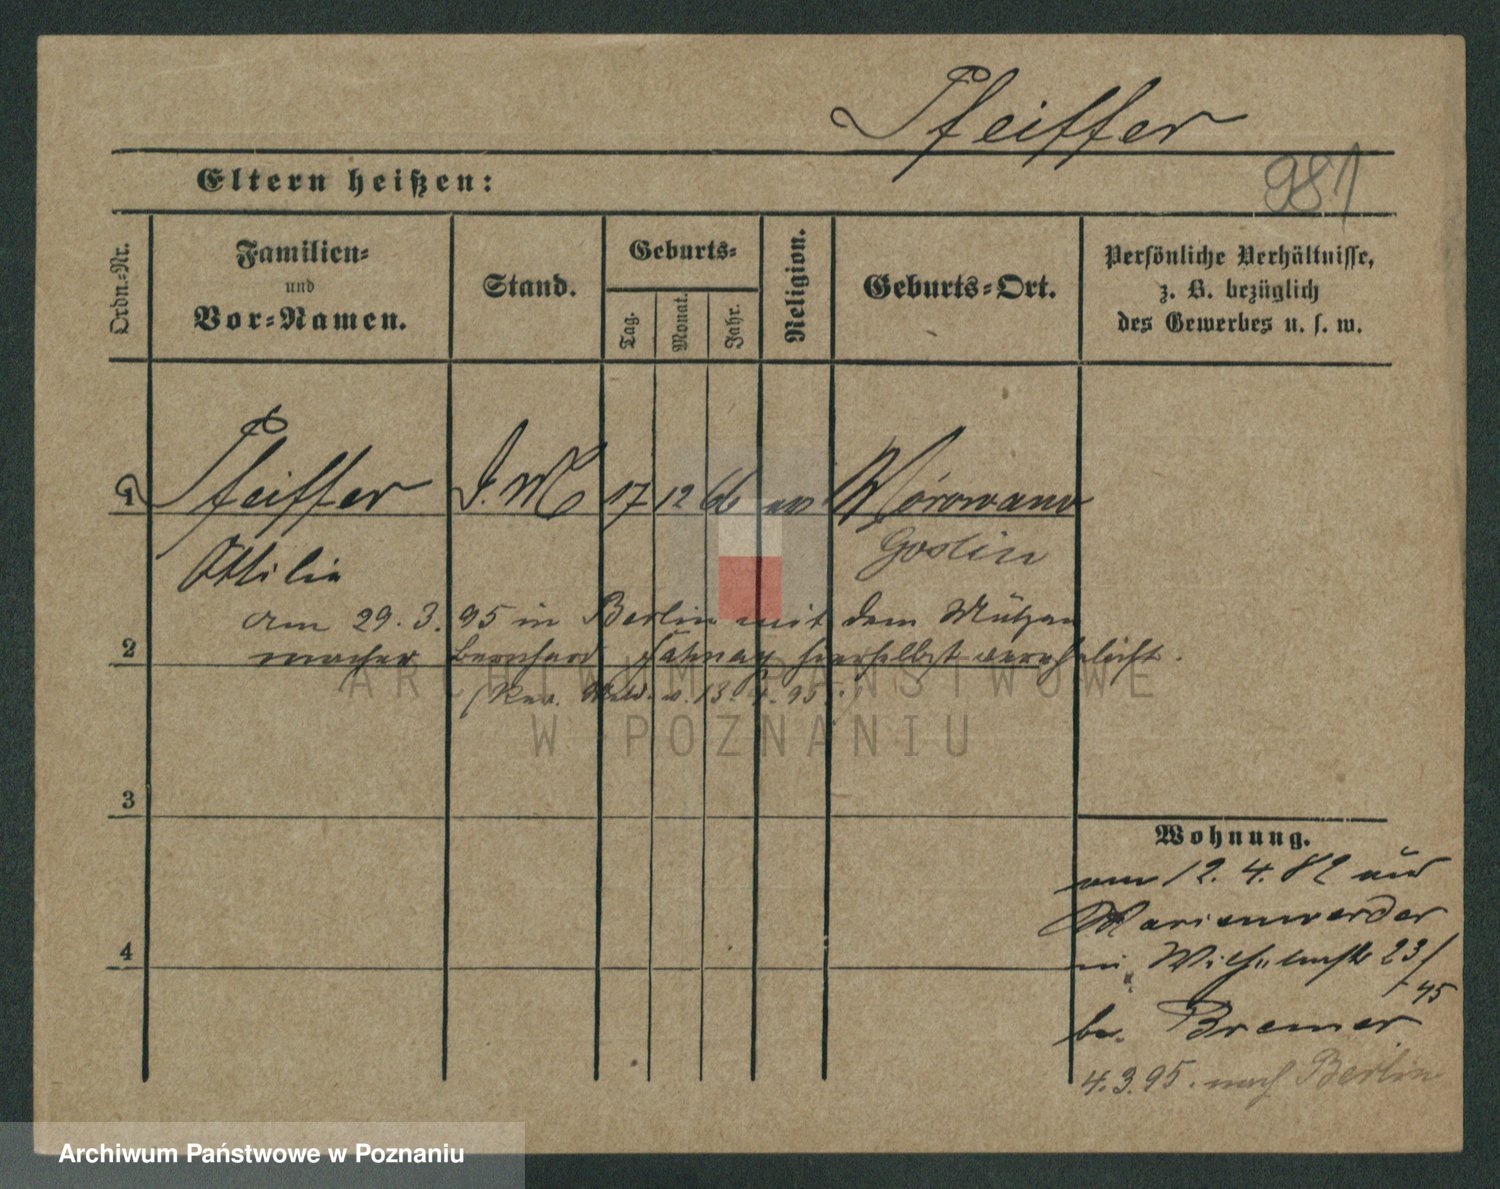 Pfeiffer
981
Eltern heißen:
Ordn.-Nr.
Familien-
und
Vor-Namen.
Stand.
Geburts-
Tag.
Monat.
Jahr.
Religion.
Geburts-Ort.
Persönliche Verhältnisse,
z. B. bezüglich
des Gewerbes u. s. w.
1 Pfeiffer 17 12 66 ev
Ottilie Goslin
am 29.3.95 in Berlin mit dem Mützen
2 macher Bernhard hierselbst verehelicht.
v. 13. 4. 95.
ARCHIWUM PAŃSTWOWE
W POZNANIU
3
Wohnung.
vom 12. 4. 82 aus
Marienwerder
4 in Wilhelmstr 23/
95
bei Bremer
4.3.95. nach Berlin
Archiwum Państwowe w Poznaniu